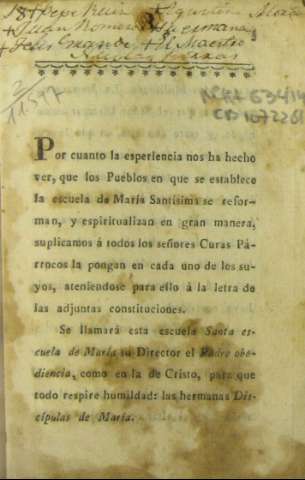 18 + Pepe Ruiz + Agustin
+ Juan Romero + Germana
+ Felis + El Maestro
3
2/11547
R 634/14
CB 1072261
Por cuanto la esperiencia nos ha hecho
ver, que los Pueblos en que se establece
la escuela de María Santísima se refor-
man, y espiritualizan en gran manera,
suplicamos á todos los señores Curas Pá-
rrocos la pongan en cada uno de los su-
yos, ateniendose para ello á la letra de
las adjuntas constituciones.
Se llamará esta escuela Santa es-
cuela de María su Director el Padre obe-
diencia, como en la de Cristo, para que
todo respire humildad: las hermanas Dis-
cípulas de María.